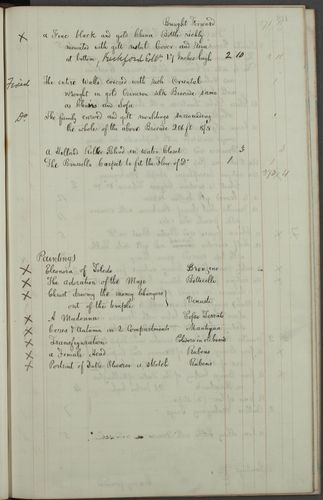 Brought Forward
x a Fine black and gold China Bottle richly
mounted with gilt metal Cover and
at bottom, 17 Inches high 2 10
Fixed The entire Walls covered with rich Oriental
wrought in gold Crimson silk Brocade same
as Chairs and Sofa
Do The finely carved and gilt mouldings surrounding
the whole of the above Brocade 206 ft
a Holland Roller Blind in water Closet 3
The Brussells Carpet to fit the Floor of do 1
Paintings
x Eleonora of Toledo Bronzino
x The adoration of the Magi Botticelli
x Christ driving the money changers
out of the temple Venusti
x A Madonna Cosmo
x Ceres & Autumn in 2 Compartments Mantegna
x Transfiguration
x a Female Head Rubens
x Portrait of a Sketch Rubens